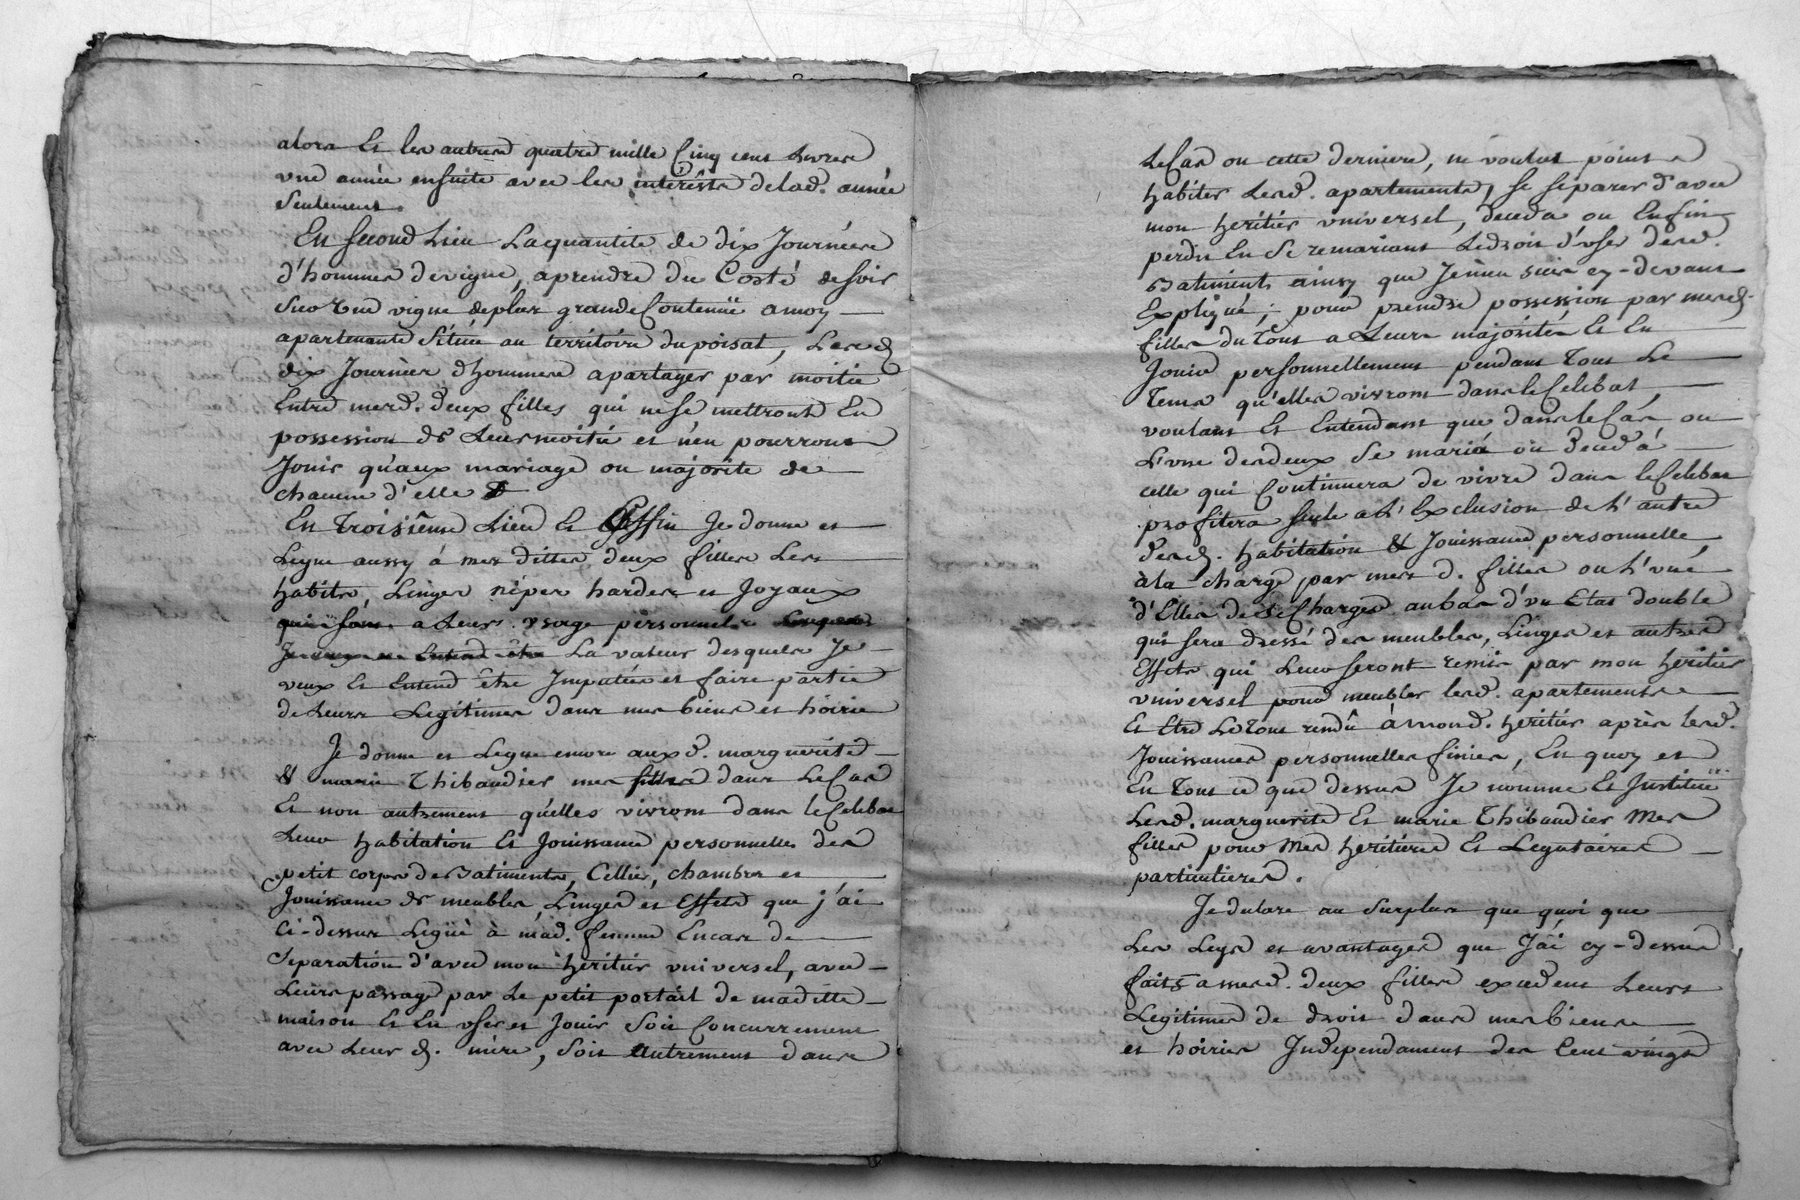 alors Et les autres quatre mille Cinq cent Livres
une année ensuite avec les interêsts delad. année
seulement.
En second Lieu Laquantité de dix Journées
d'hommes devigne, aprendre du Costé desoir
Sur une vigne deplus grande Contenüe amoy
apartenante Sitüée au territoire dupoisat, Lesd.
dix Journées d'hommes apartager par moitié
Entre mesd. deux filles qui nese mettront En
possession de Leurmoitié et n'en pourront
Jouir qu'aux mariage ou majorité de
chacune d'elle
En Troisiême Lieu Et Enffin Je donne et
Legue aussy á mes dittes deux filles Les
habits, Linges nipes hardes et Joyaux
qui sont a Leurs usage personnels
Je veux et Entend être La valeur desquels Je
veux Et Entend être Imputées et faire partie
de Leurs Legitimes dans mes biens et hoirie
Je donne et Legue encore auxd. marguerite
& marie Thibaudier mes filles dans Le Cas
Et non autrement qu'elles vivront dans le Celibat
Leur habitation Et Jouissance personnelles des
petit corps de Batiments, Cellier, chambres et
Jouissance de meubles, Linges et Effets que j'ai
Ci-dessus Legüé à mad. femme Encas de
Separation d'avec mon heritier universel, avec
Leurs passage par Le petit portail de maditte
maison Et En user et Jouir Soit Concurrement
avec Leur d. mère, Soit autrement dans
Le Cas ou cette derniere, ne voulut point
habiter Lesd. apartements, se séparer d'avec
mon heritier universel, deceda ou Enfin
perdit En Se remariant Ledroit d'user desd.
Batiments ainsy que Jem'en suis cy-devant
Expliqué; pour prendre possession par mesd.
filles du Tout a Leurs majorités Et En
Jouir personnellement pendant Tout Le
Tems qu'elles vivront dans le Celibat,
voulant Et Entendant que dans le Cas ou
L'une desdeux Se maria ou deceda
celle qui Continuera de vivre dans le Celibat
profitera seule a L'Exclusion de L'autre
desd. habitation & Jouissance personnelle,
à la charge, par mes d. filles ou L'une
d'Elles de se Charger aubas d'un Etat double
qui sera dressé des meubles, Linges et autres
Effets qui Leur seront remis par mon heritier
universel pour meubler lesd. apartements
Et Etre Le Tout rendû à mond. heritier après lesd.
Jouissances personnelles finies, En quoy et
En Tout ce que dessus Je nomme Et Institüe
Lesd. marguerite Et marie Thibaudier Mes
filles pour Mes heritieres Et Legataires
particulieres.
Je declare au Surplus que quoi que
Les Legs et avantages que J'ai cy-dessus
faits a mesd. deux filles excedent Leurs
Legitimes de droit dans mes biens
et hoiries Independament des Cent vingt